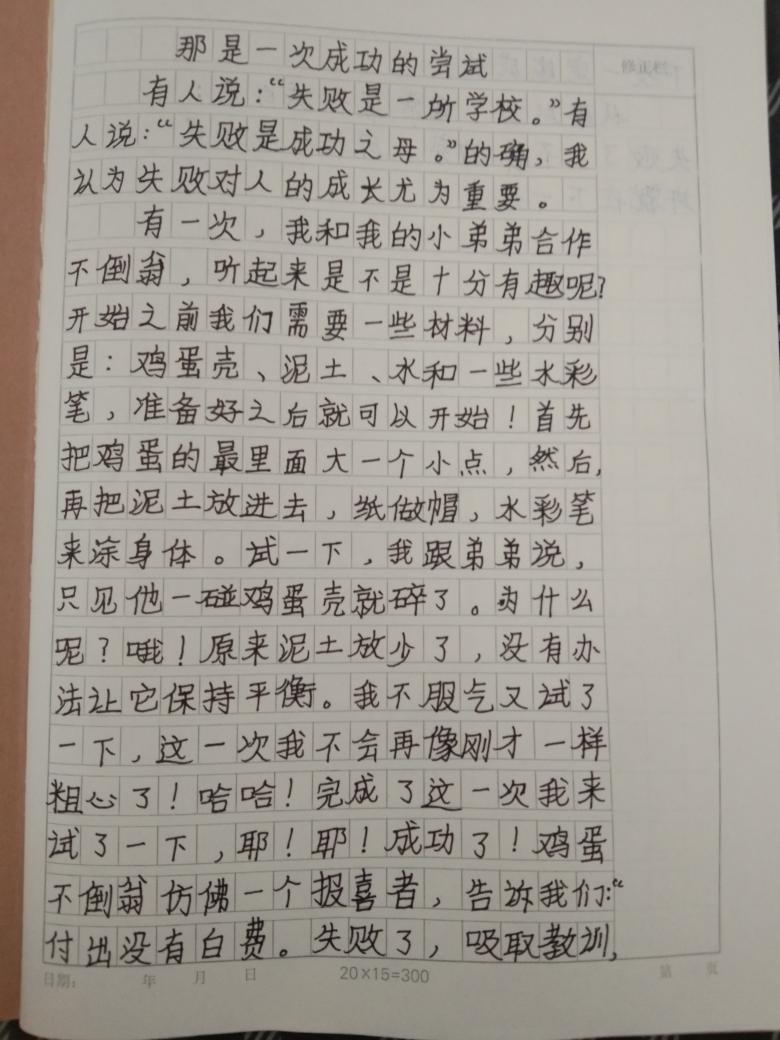 那是一次成功的尝试
修正栏
有人说：“失败是一所学校。”有
人说：“失败是成功之母。”的确，我
认为失败对人的成长尤为重要。
有一次，我和我的小弟弟合作
不倒翁，听起来是不是十分有趣呢？
开始之前我们需要一些材料，分别
是：鸡蛋壳、泥土、水和一些水彩
笔，准备好之后就可以开始！首先
把鸡蛋的最里面大一个小点，然后，
再把泥土放进去，纸做帽，水彩笔
来涂身体。试一下，我跟弟弟说，
只见他一碰鸡蛋壳就碎了。为什么
呢？哦！原来泥土放少了，没有办
法让它保持平衡。我不服气又试了
一下，这一次我不会再像刚才一样
粗心了！哈哈！完成了这一次我来
试了一下，耶！耶！成功了！鸡蛋
不倒翁仿佛一个报喜者，告诉我们：“
付出没有白费。失败了，吸取教训，
日期： 年 月 日 20×15=300 第 页